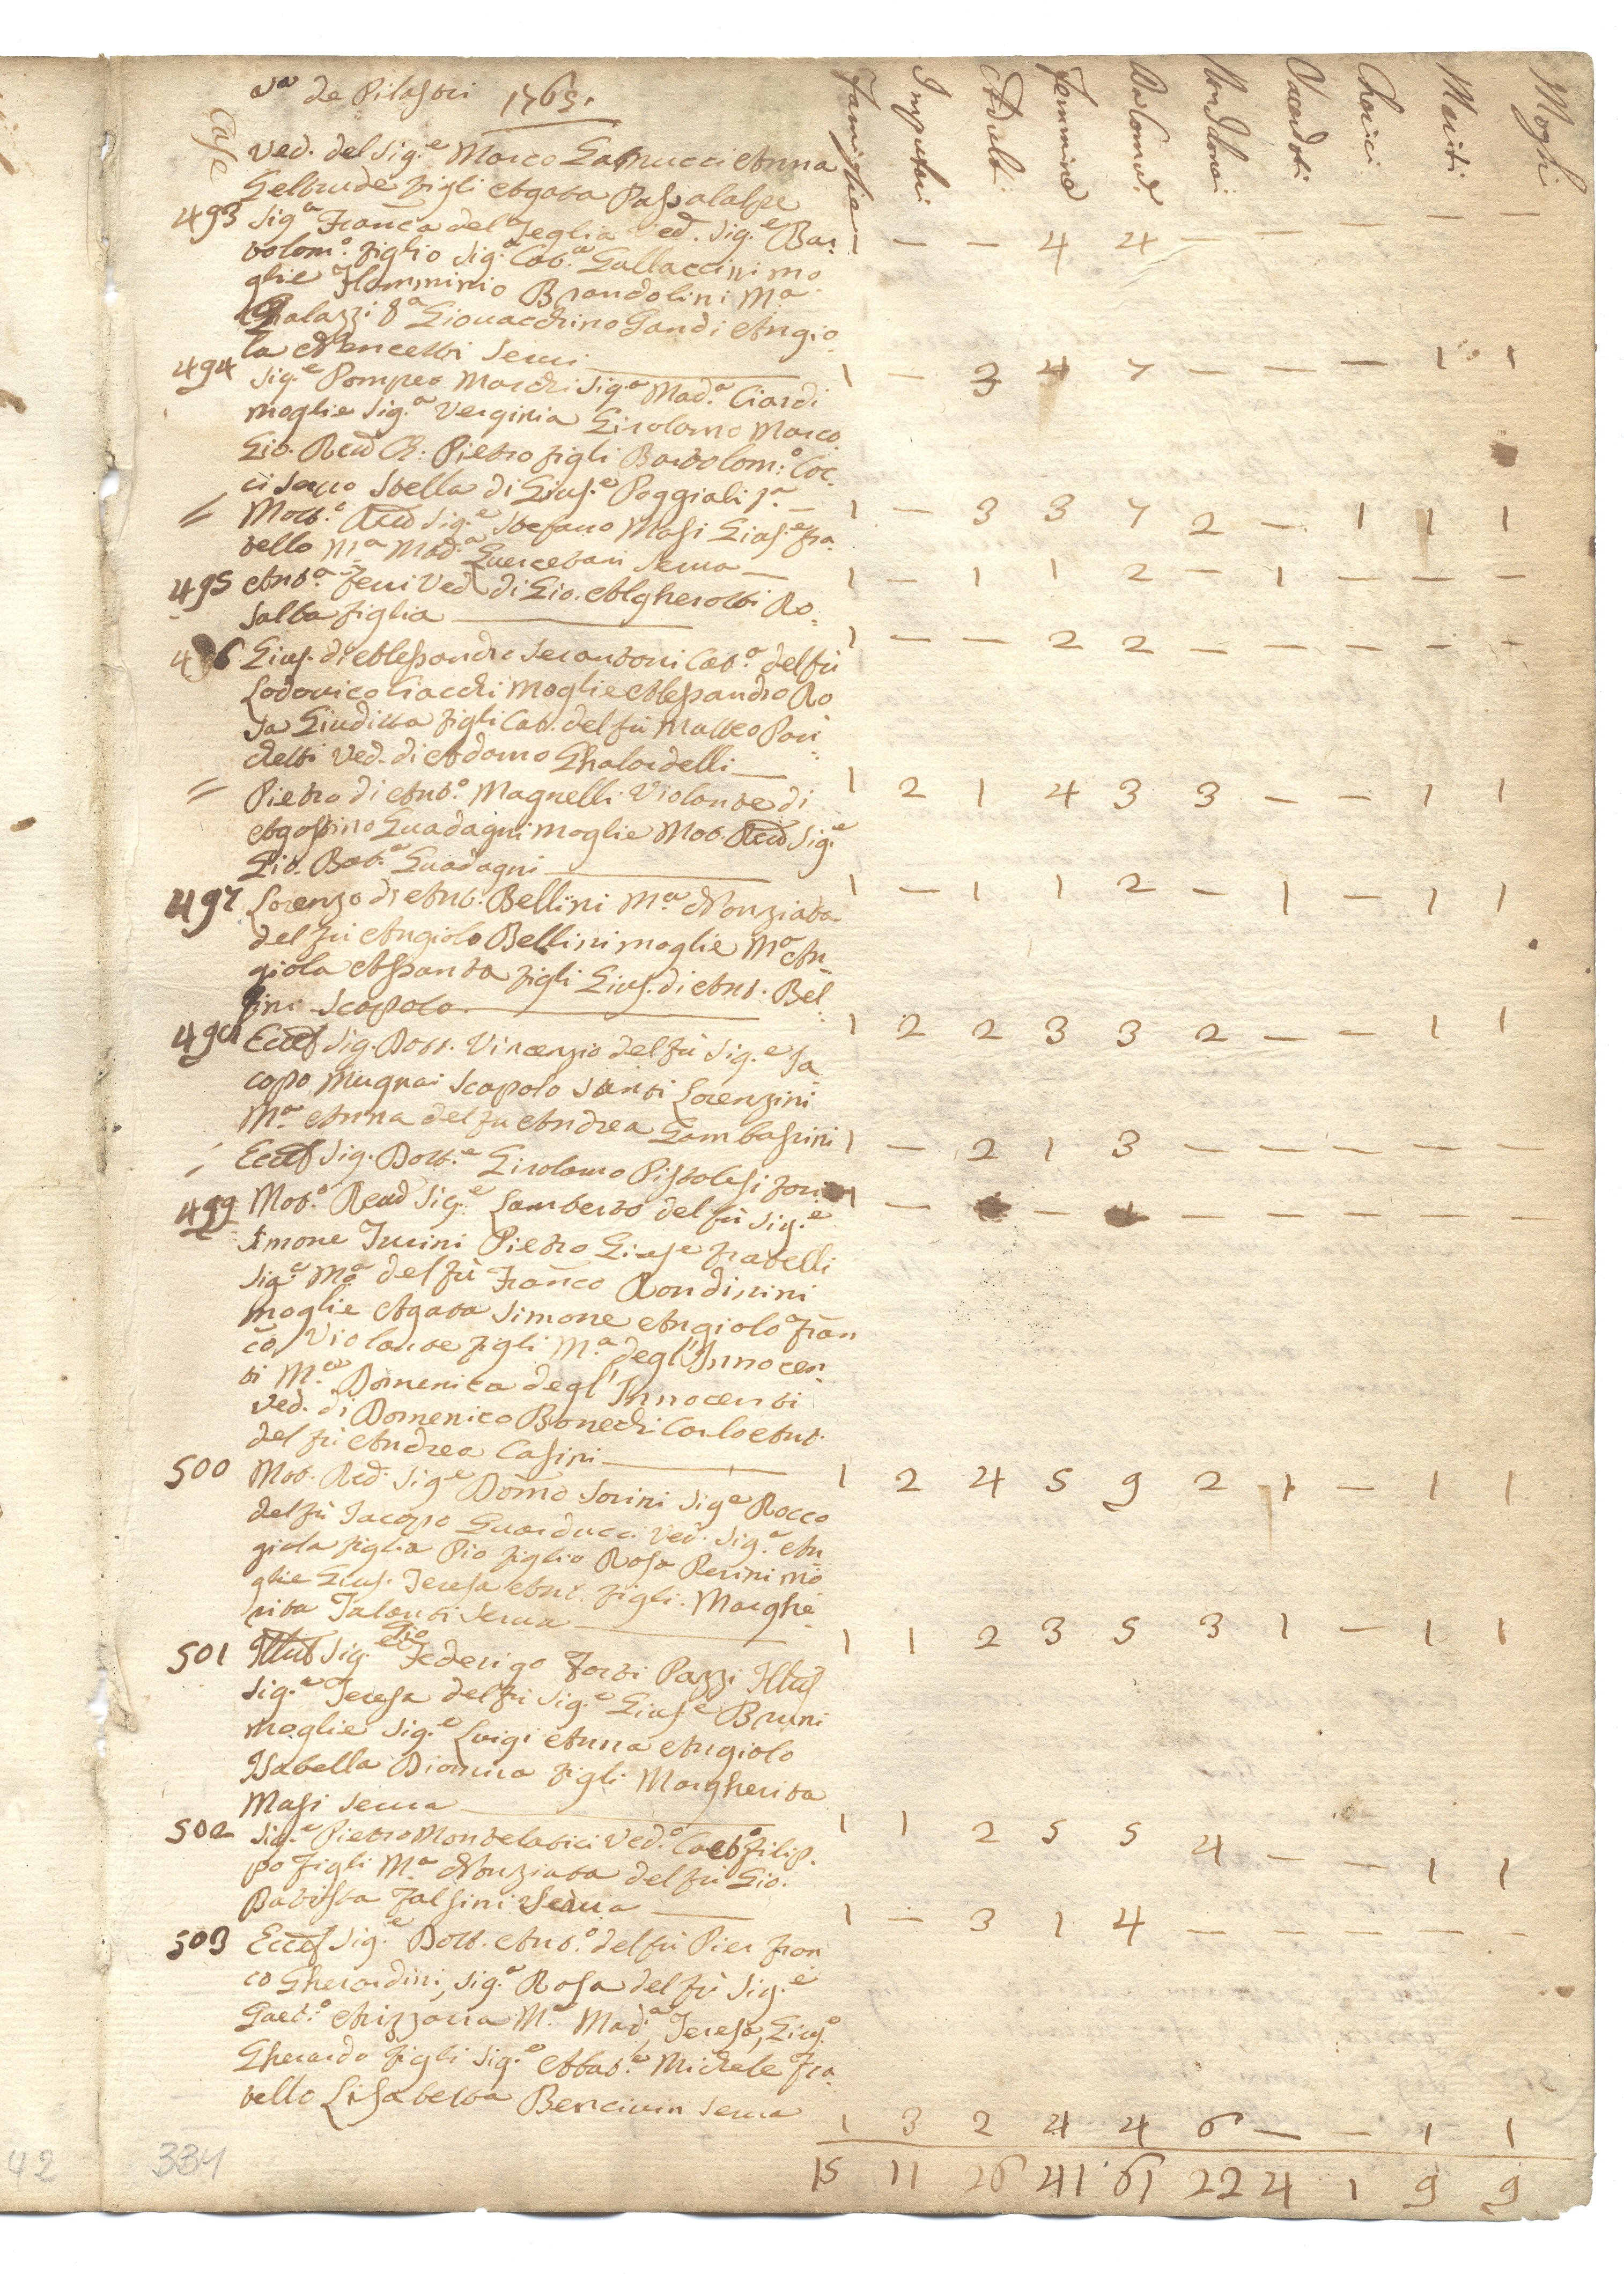 Va de Pilastri 1765.
Case Famiglie Impuberi Adulti Femmine Da Comun. Non da Comun. Sacerdoti Cherici Mariti Mogli
Ved. del Sig.e Marco Anna
Geltrude figli Agata Passalacqe
1 — — 4 4 — — — — —
493 Sig.a Franca del Teglia Ved. Sig.e Bar
tolom.o figlio Sig.a Cat.a Gallaccini mo
glie Flamminio Brandolini M.a
Palazzi S.a Giovacchino Gandi Angio
la Nencetti Servi
1 — 3 4 7 — — — 1 1
494 Sig.e Pompeo Marchi Sig.a Mad.a Ciardi
moglie Sig.a Verginia Girolamo Marco
Gio. Read Ch: Pietro figli Bartolom:o Coc
ci Servo Stella di Gius.e Poggiali S.a
1 — 3 3 7 2 — 1 1 1
= Molt.o Read Sig.e Stefano Masi Gius.e fra
tello M.a Mad.a Quercetani Serva
1 — 1 1 2 — 1 — — —
495 Ant.a Feri Ved. di Gio. Algherotti Ro
salba figlia
1 — — 2 2 — — — — —
496 Gius. di Alessandro Serantoni Cat.a del fù
Lodovico Ciacchi Moglie Alessandro Ro
sa Giuditta figli Cat. del fù Matteo Pari
chetti Ved. di Adamo Ghalardelli
1 2 1 4 3 3 — — 1 1
= Pietro di Ant.o Magnelli Violante di
Agostino Guadagni moglie Mot. Read Sig.e
Gio. Bat.a Guadagni
1 — 1 1 2 — 1 — 1 1
497 Lorenzo di Ant. Bellini M.a Nonziata
del fù Angiolo Bellini moglie M.a An
giola Assanta figli Gius. di Ant. Bel
lini Scapolo
1 2 2 3 3 2 — — 1 1
498 Eccel Sig. Dott. Vincenzio del fù Sig.e Ja
copo Mugnai Scapolo Santi Lorenzini
M.a Anna del fu Andrea Gambassini
1 — 2 1 3 — — — — —
Eccel Sig. Dott.e Girolamo Pistolesi fori
1 — — — — — — —
499 Mot.o Read Sig.e Lamberto del fù Sig.e
Simone Turini Pietro Gius.e fratelli
Sig.a M.a del fù Franco Rondinini
moglie Agata Simone Angiolo Fran
co Violante figli M.a degl'Innocen
ti M.a Domenica degl'Innocenti
Ved. di Domenico Bonechi Carlo Ant.
del fù Andrea Casini
1 2 4 5 9 2 1 — 1 1
500 Mot. Red. Sig.e Domo Sorini Sig.a Rocco
del fù Jacopo Guarducci Ved. Sig.a An
giola figlia Pio figlio Rosa Perini mo
glie Gius. Teresa Ant. figli. Marghe
rita Talenti Serva
1 1 2 3 5 3 1 — 1 1
501 Illus Sig.e Federigo Forti Pazzi Illus
Sig.a Teresa del fù Sig.e Gius.e Bruni
moglie Sig.e Luigi Anna Angiolo
Isabella Dionisia figli Margherita
Masi Serva
1 1 2 5 5 4 — — 1 1
502 Sig.e Pietro Montelatici Ved.o Filip
po figli M.a Nonziata del fù Gio.
Batista Falsini Serva
1 — 3 1 4 — — — — —
503 Eccel Sig.e Dott. Ant.o del fù Pier Fran
co Gherardini, Sig.a Rosa del fù Sig.e
Gaet.o Arizzarra M.a Mad.a, Teresa, Gius.o
Gherardo figli Sig.e Abbat.e Michele Fra
tello Lisabetta Bencivin Serva
1 3 2 4 4 6 — — 1 1
15 11 26 41 61 22 4 1 9 9
42
331